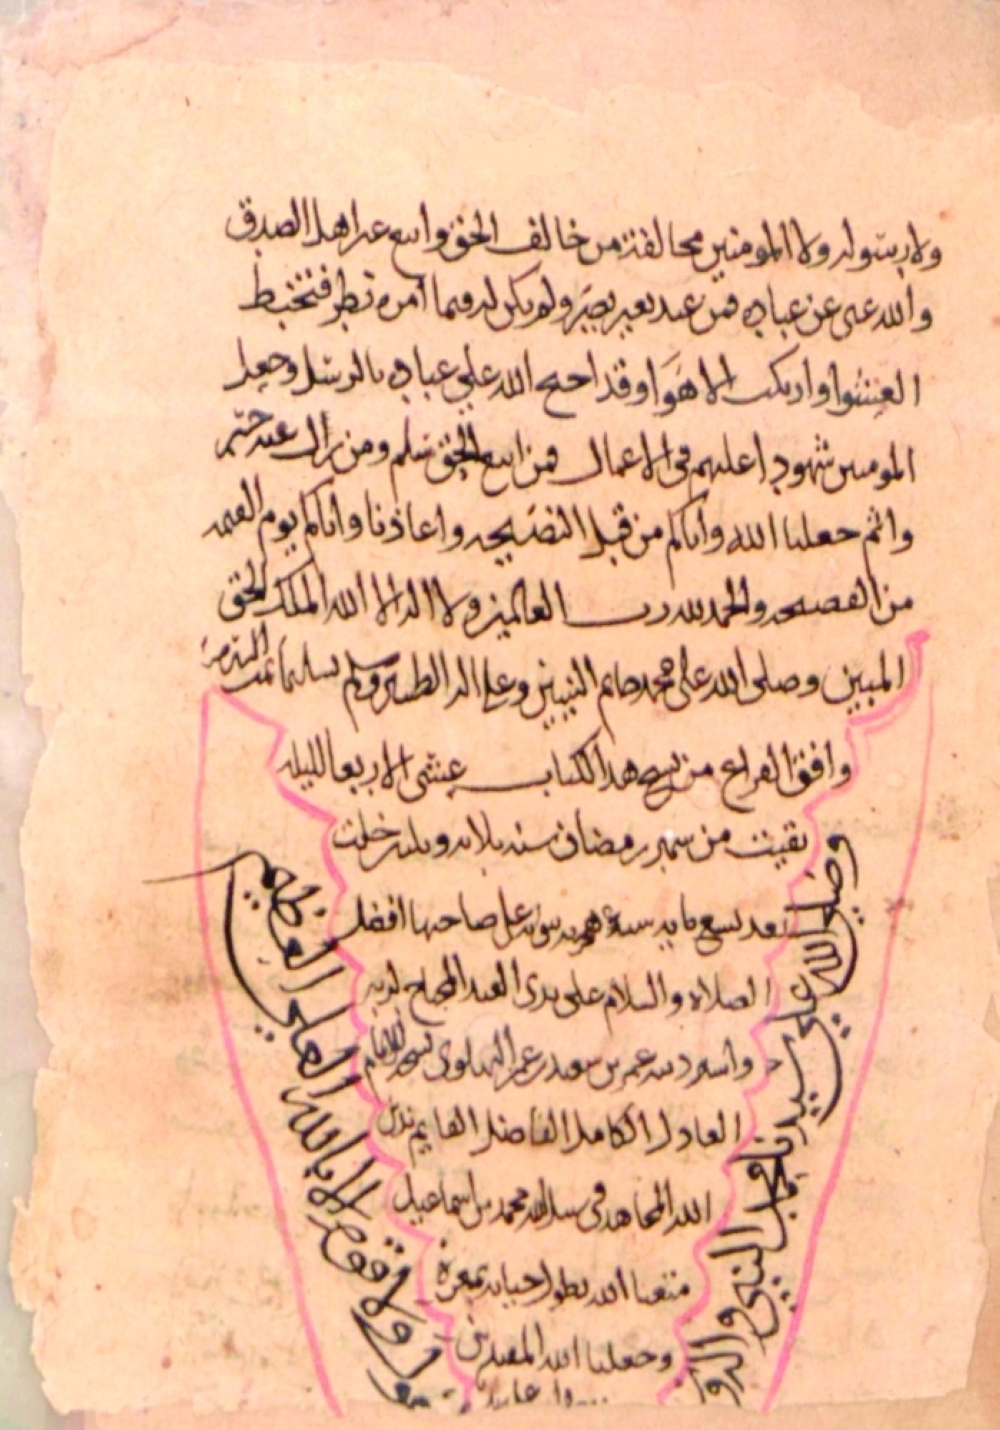 ولا رسوله ولا المومنين مخالفة من خالف الحق واتبع غير اهل الصدق
والله غنى عن عباده فمن عبد بغير بصر ولم يكن له فيما امره نظر فتخبط
العشوا وارتكب الاهوا وقد احتج الله علي عباده بالرسل وجعل
المومنين شهودا عليهم في الاعمال فمن اتبع الحق سلم ومن زال عنه
واثم جعلنا الله واياكم من قبل النصيحه واعاذنا واياكم يوم القيمه
من الفضيحه والحمد لله رب العالمين ولا اله الا الله الملك الحق
المبين وصلى الله على محمد خاتم النبيين وعلى اله الطيبين وسلم تسليما تمت
وافق الفراغ من نسخ هذا الكتاب عشى الاربعا لليله
بقيت من شهر رمضان سنه ثلاث وثلاثين خلت
بعد تسع مايه سنة هجريه نبويه على صاحبها افضل
الصلاة والسلام على يدى العبد المحتاج لربه
عمر بن سعيد بن عمر البهلوى نسخه للامام
العادل الكامل الفاضل القايم بدين
الله المجاهد في سبيل الله محمد بن اسماعيل
متعنا الله بطول حياته بمعزة
وجعلنا الله المقتدين
وصلى الله على سيدنا محمد النبي واله و
ولا قوة الا بالله العلي العظيم